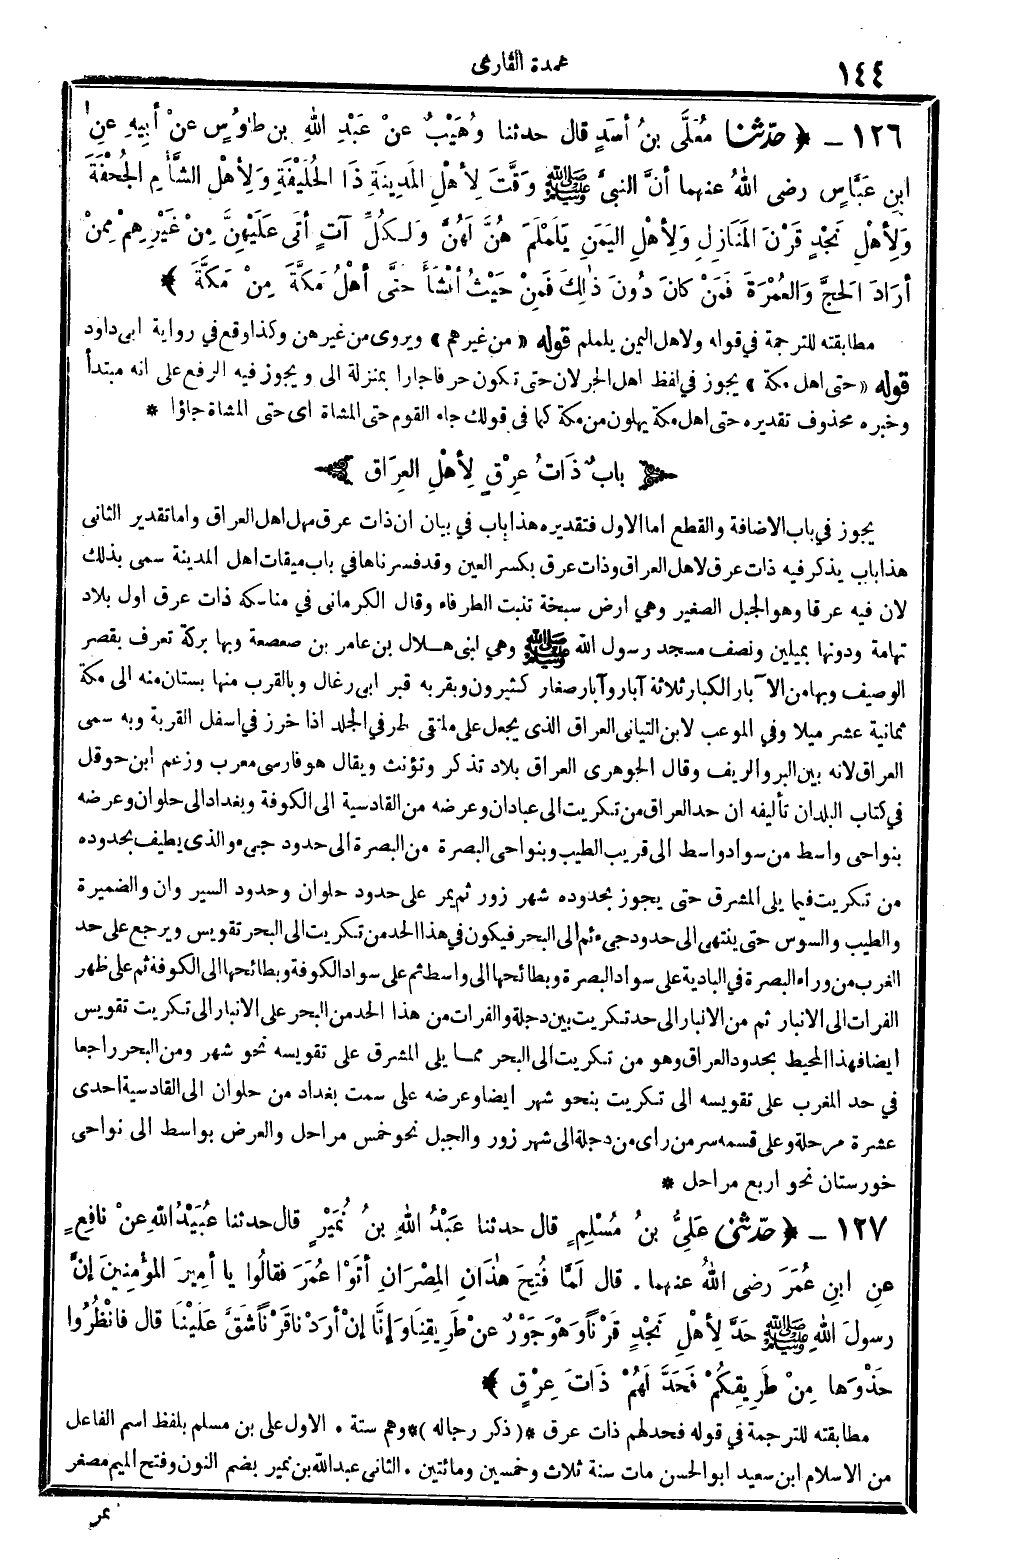 ١٤٤
عمدة القارى
١٢٦ ــ ﴿ حدّثنا مُعَلَّى بنُ أسَدٍ قال حدثنا وُهَيْبٌ عنْ عَبْدِ اللهِ بن طاوُسٍ عنْ أبِيهِ عنِ
ابنِ عَبَّاسٍ رضى اللهُ عنهما أنَّ النبىَّ ﷺ وَقَّتَ لِأهْلِ المَدِينَةِ ذَا الحُلَيْفَةِ وَلِأهْلِ الشَّأْمِ الجُحْفَةَ
وَلِأهْلِ نَجْدٍ قَرْنَ المَنَازِلِ وَلِأهْلِ اليَمَنِ يَلَمْلَمَ هُنَّ لَهُنَّ وَلِكُلِّ آتٍ أتَى عَلَيْهِنَّ مِنْ غَيْرِهِمْ مِمَّنْ
أرَادَ الحَجَّ وَالعُمْرَةَ فَمَنْ كانَ دُونَ ذٰلِكَ فَمِنْ حَيْثُ أنْشَأَ حتَّى أهْلُ مَكَّةَ مِنْ مَكَّةَ ﴾
مطابقته للترجمة في قوله ولاهل اليمن يلملم قوله «من غيرهم» ويروى من غيرهن وكذا وقع في رواية ابى داود
قوله «حتى اهل مكة» يجوز في لفظ اهل الجر لان حتى تكون حرفا جارا بمنزلة الى ويجوز فيه الرفع على انه مبتدأ
وخبره محذوف تقديره حتى اهل مكة يهلون من مكة كما في قولك جاء القوم حتى المشاة اى حتى المشاة جاؤا *
باب ذَاتُ عِرْقٍ لِأهْلِ العِرَاق
يجوز في باب الاضافة والقطع اما الاول فتقديره هذا باب في بيان ان ذات عرق مهل اهل العراق واما تقدير الثانى
هذا باب يذكر فيه ذات عرق لاهل العراق وذات عرق بكسر العين وقد فسرناها في باب ميقات اهل المدينة سمى بذلك
لان فيه عرقا وهو الجبل الصغير وهي ارض سبخة تنبت الطرفاء وقال الكرمانى في مناسكه ذات عرق اول بلاد
تهامة ودونها بميلين ونصف مسجد رسول الله ﷺ وهي لبنى هلال بن عامر بن صعصعة وبها بركة تعرف بقصر
الوصيف وبها من الآبار الكبار ثلاثة آبار وآبار صغار كثيرون وبقربه قبر ابى رغال وبالقرب منها بستان منه الى مكة
ثمانية عشر ميلا وفي الموعب لابن التيانى العراق الذى يجعل على ملتقى طرفي الجلد اذا خرز في اسفل القربة وبه سمى
العراق لانه بين البر والريف وقال الجوهرى العراق بلاد تذكر وتؤنث ويقال هو فارسى معرب وزعم ابن حوقل
في كتاب البلدان تأليفه ان حد العراق من تكريت الى عبادان وعرضه من القادسية الى الكوفة وبغداد الى حلوان وعرضه
بنواحى واسط من سواد واسط الى قريب الطيب وبنواحى البصرة من البصرة الى حدود جبىء والذى يطيف بحدوده
من تكريت فيما يلى المشرق حتى يجوز بحدوده شهر زور ثم يمر على حدود حلوان وحدود السيروان والضميرة
والطيب والسوس حتى ينتهى الى حدود جىء ثم الى البحر فيكون في هذا الحد من تكريت الى البحر تقويس ويرجع على حد
الغرب من وراء البصرة في البادية على سواد البصرة وبطائحها الى واسط ثم على سواد الكوفة وبطائحها الى الكوفة ثم على ظهر
الفرات الى الانبار ثم من الانبار الى حد تكريت بين دجلة والفرات من هذا الحد من البحر على الانبار الى تكريت تقويس
ايضا فهذا المحيط بحدود العراق وهو من تكريت الى البحر مما يلى المشرق على تقويسه نحو شهر ومن البحر راجعا
في حد المغرب على تقويسه الى تكريت بنحو شهر ايضا وعرضه على سمت بغداد من حلوان الى القادسية احدى
عشرة مرحلة وعلى قسمه سر من راى من دجلة الى شهر زور والجبل نحو خمس مراحل والعرض بواسط الى نواحى
خورستان نحو اربع مراحل *
١٢٧ ــ ﴿ حدّثنى عَلِىُّ بنُ مُسْلِمٍ قال حدثنا عَبْدُ اللهِ بنُ نُمَيْرٍ قال حدثنا عُبَيْدُ اللهِ عنْ نافِعٍ
عنِ ابنِ عُمَرَ رضى اللهُ عنهما . قال لَمَّا فُتِحَ هٰذَانِ المِصْرَانِ أتَوْا عُمَرَ فقالُوا يا أمِيرَ المؤْمِنِينَ إنَّ
رسولَ اللهِ ﷺ حَدَّ لِأهْلِ نَجْدٍ قَرْناً وَهْوَ جَوْرٌ عنْ طَرِيقِنَا وَإنَّا إنْ أرَدْنا قَرْناً شَقَّ عَلَيْنَا قال فانْظُرُوا
حَذْوَها مِنْ طَرِيقِكُمْ فَحَدَّ لَهُمْ ذَاتَ عِرْقٍ ﴾
مطابقته للترجمة في قوله فحد لهم ذات عرق *(ذكر رجاله)* وهم ستة . الاول على بن مسلم بلفظ اسم الفاعل
من الاسلام ابن سعيد ابو الحسن مات سنة ثلاث وخمسين ومائتين . الثانى عبد الله بن نمير بضم النون وفتح الميم مصغر
نمر